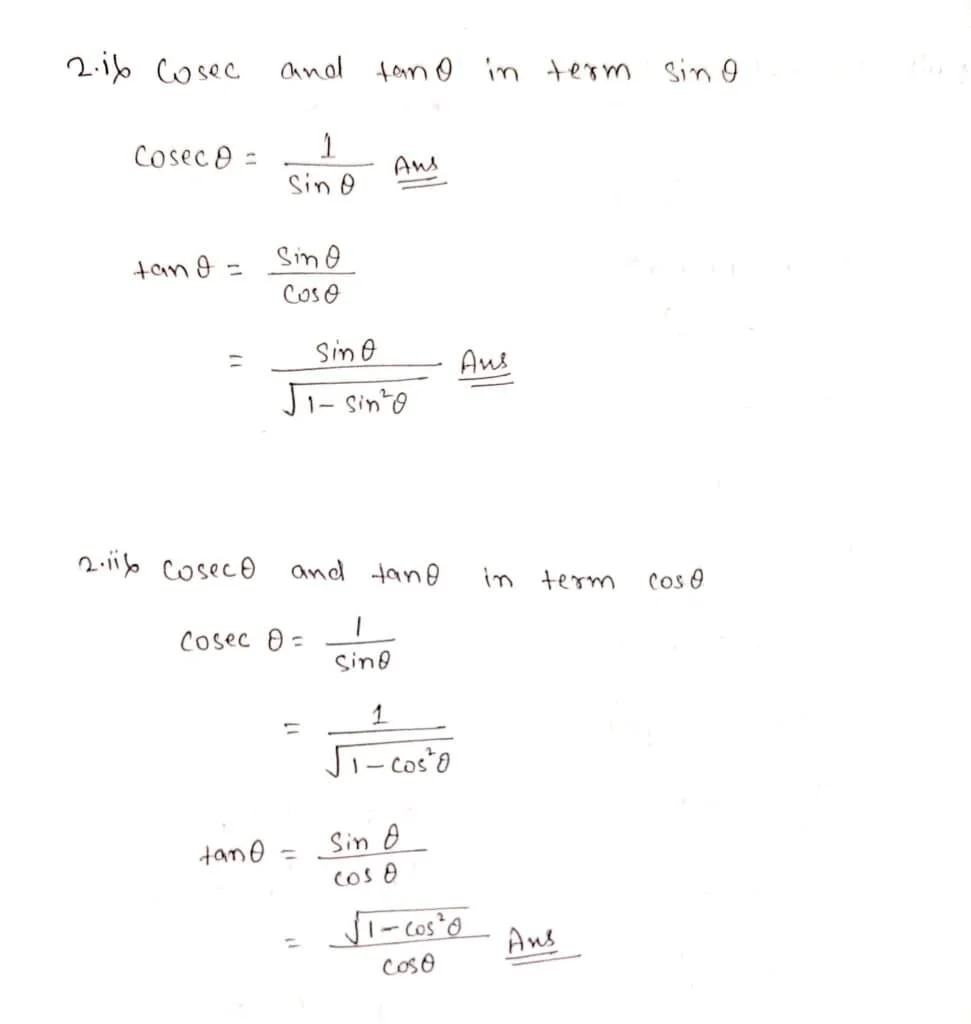 2.i) Cosec and tanθ in term sinθ
Cosecθ = 1/Sinθ Ans
tanθ = Sinθ/Cosθ
= Sinθ/√1-Sin²θ Ans
2.ii) Cosecθ and tanθ in term cosθ
Cosec θ = 1/Sinθ
= 1/√1-Cos²θ
tanθ = Sin θ/cos θ
= √1-Cos²θ/Cosθ Ans